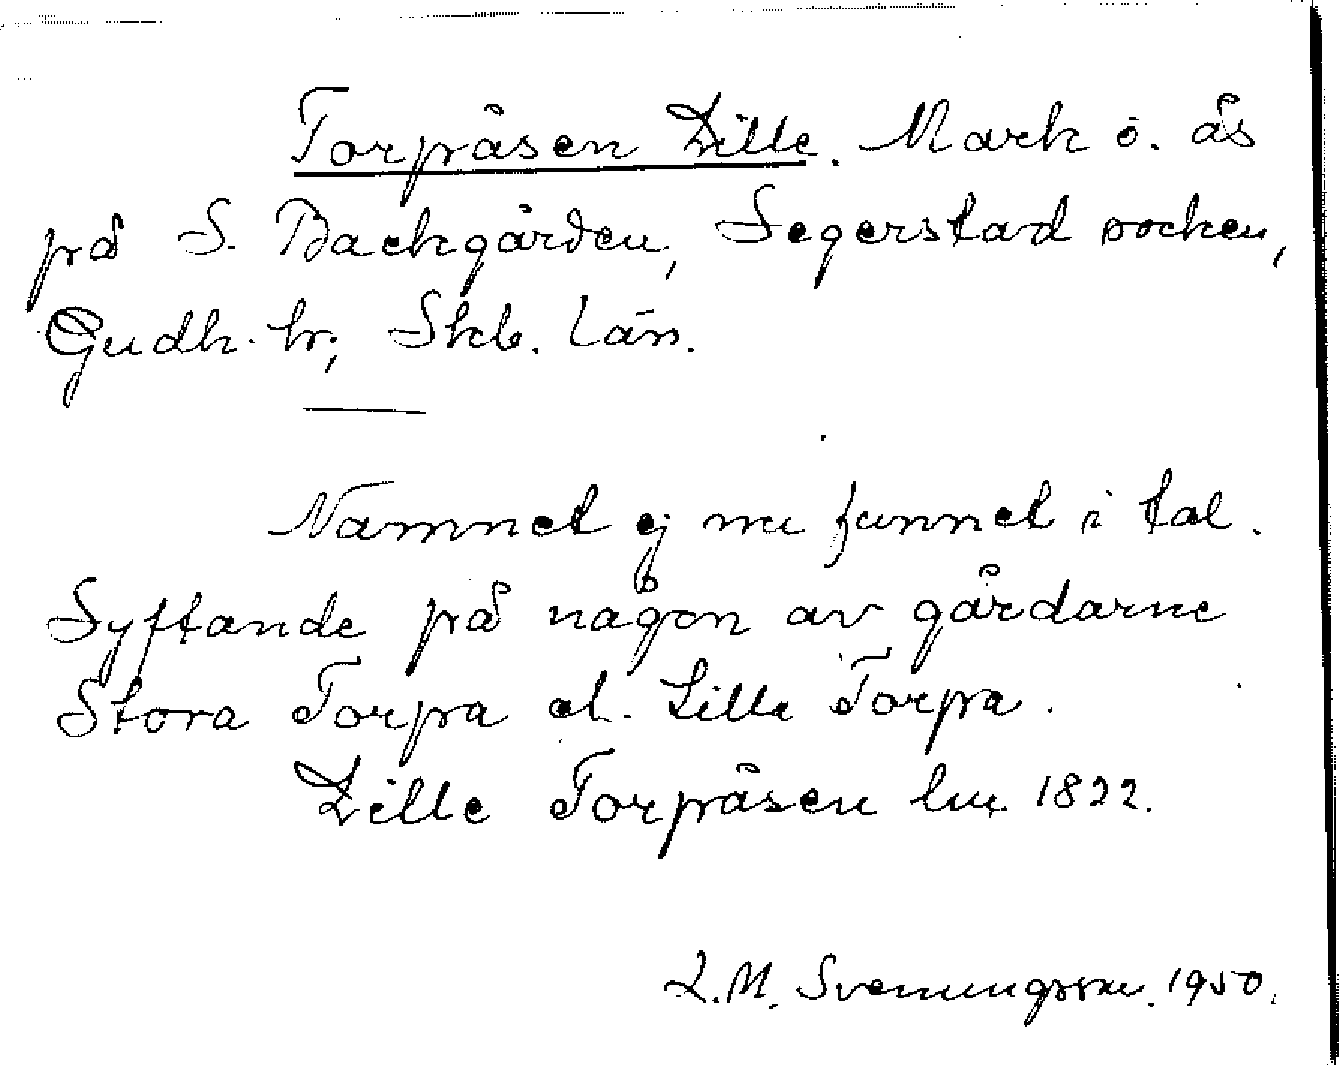 Torpåsen Lille. Mark o. ås
på S. Backgården, Segerstad socken,
Gudh. hr; Skb. län.
Namnet ej nu funnet i tal.
Syftande på någon av gårdarne
Stora Torpa el. Lille Torpa.
Lille Torpåsen lm 1822.
L.M. Svenungsson. 1950.